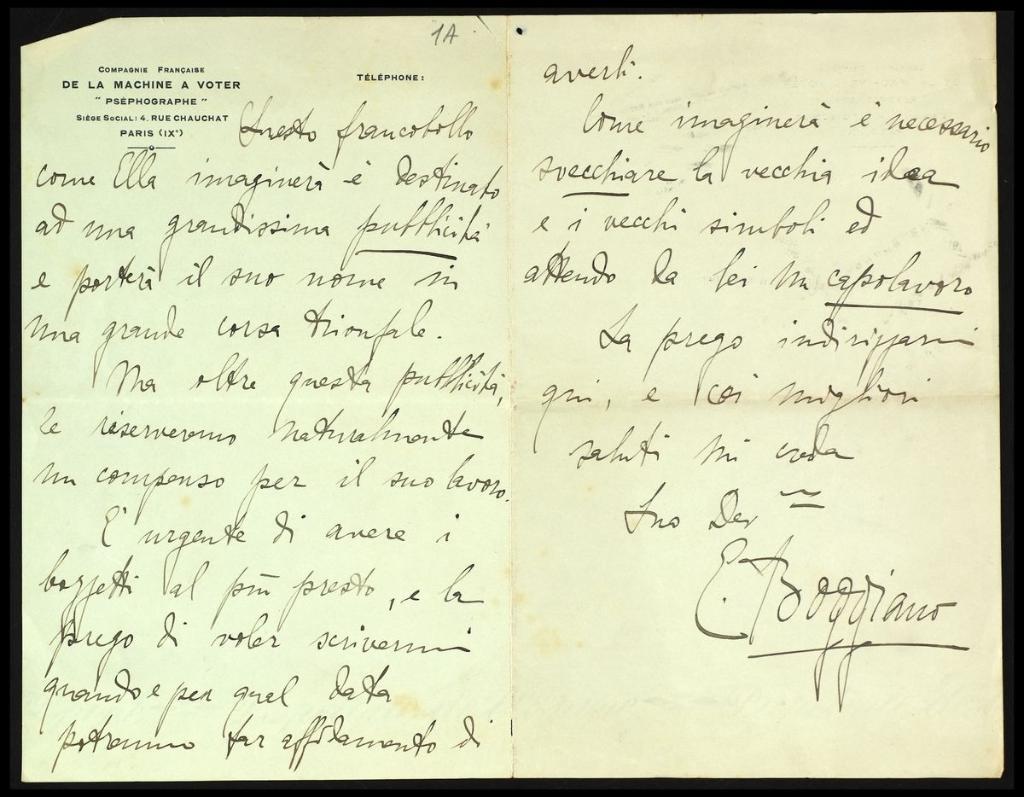 1A
COMPAGNIE FRANÇAISE
DE LA MACHINE A VOTER
"PSÉPHOGRAPHE"
SIÈGE SOCIAL: 4, RUE CHAUCHAT
PARIS (IXe)
TÉLÉPHONE:
Questo francobollo
come Ella imaginerà è destinato
ad una grandissima pubblicità
e porterà il suo nome in
una grande corsa trionfale.
Ma oltre questa pubblicità,
le riserveremo naturalmente
un compenso per il suo lavoro.
E' urgente di avere i
bozzetti al più presto, e la
prego di voler scrivermi
quando e per qual data
potremmo far affidamento di
averli.
Come imaginerà è necessario
svecchiare la vecchia idea
e i vecchi simboli ed
attendo da lei un capolavoro
La prego indirizzarmi
qui, e coi migliori
saluti mi creda
Suo Dev mo
E. Boggiano